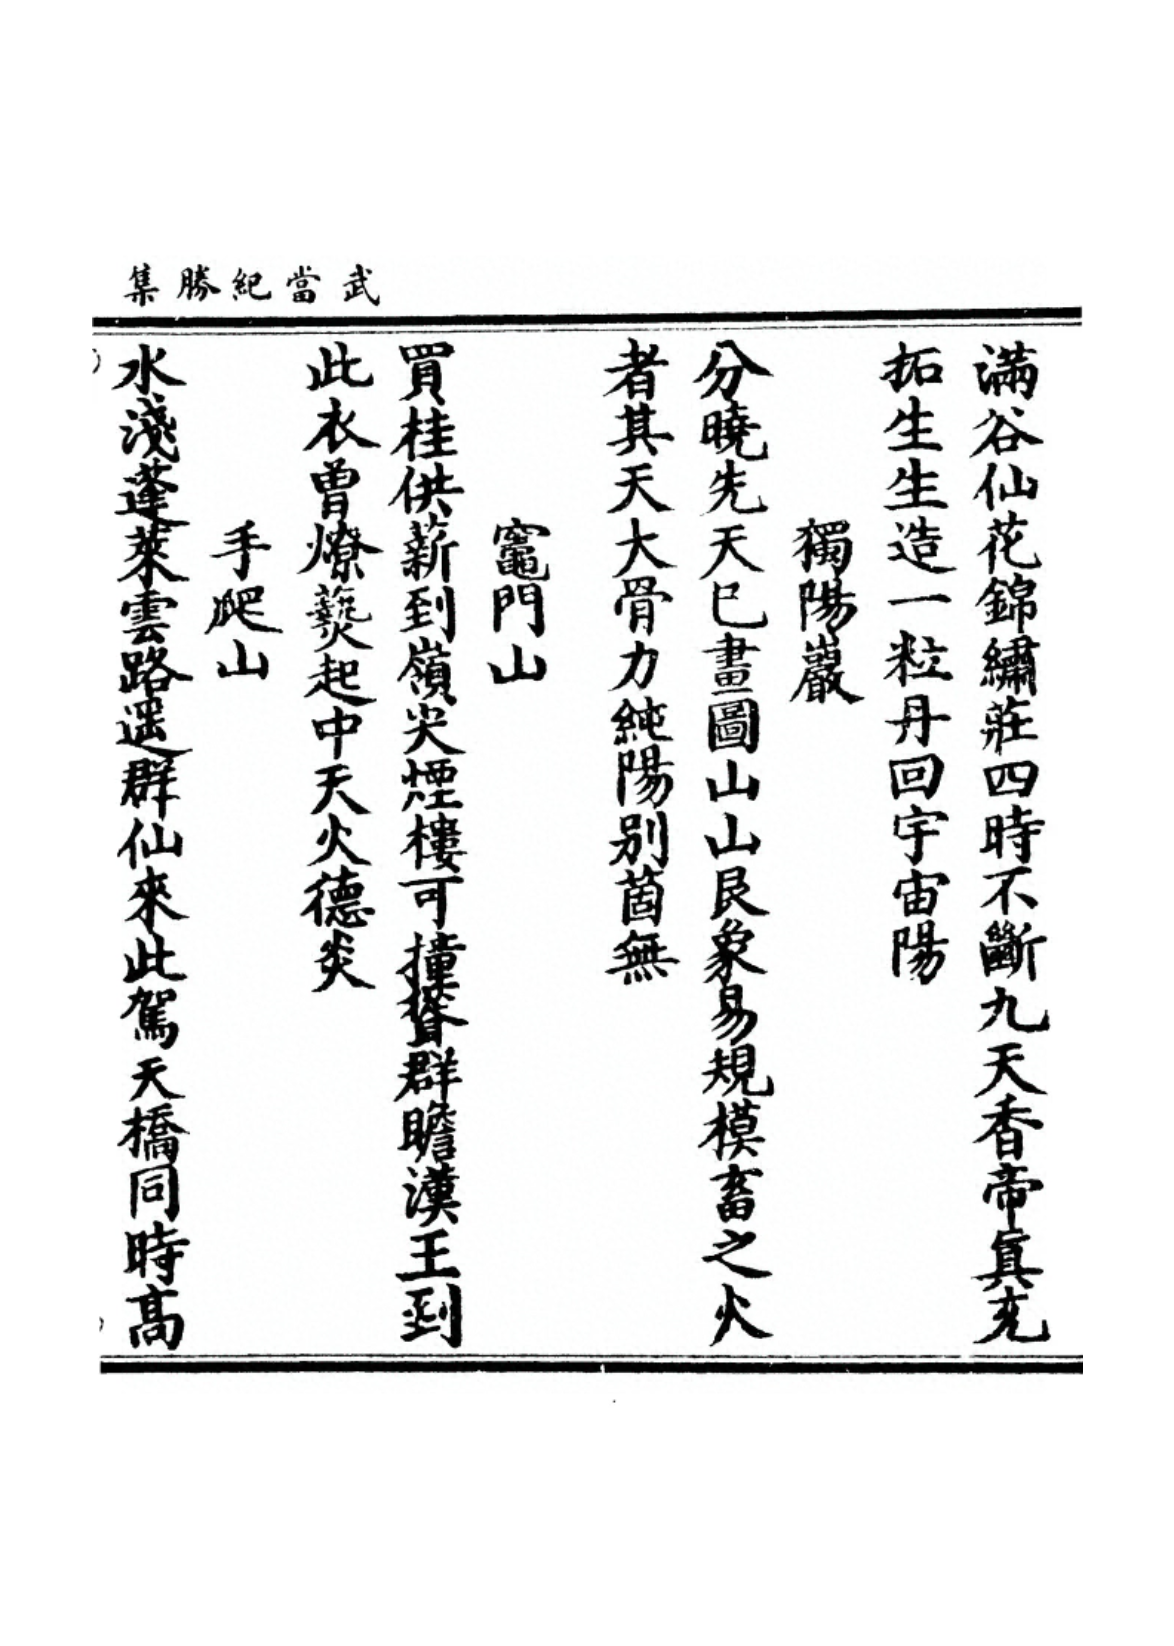 武當紀勝集
滿谷仙花錦繡莊四時不斷九天香帝真充
拓生生造一粒丹回宇宙陽
獨陽巖
分曉先天巳畫圖山山艮象易規模畜之火
者其天大骨力純陽別箇無
竈門山
買桂供薪到嶺尖煙樓可撞聳群瞻漢王到
此衣曾燎爇起中天火德炎
手爬山
水淺蓬萊雲路遥群仙來此駕天橋同時髙